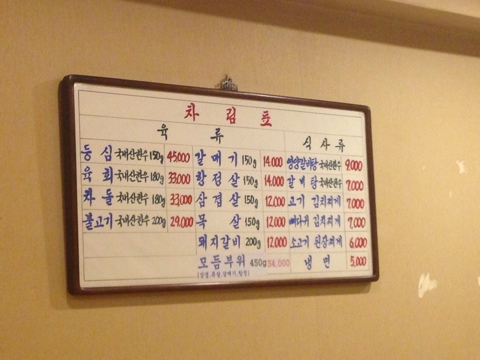 차림표
육류 식사류
등심 국내산한우 150g 45,000 갈매기 150g 14,000 영양갈비탕 국내산한우 9,000
육회 국내산한우 180g 33,000 항정살 150g 14,000 갈비탕 국내산한우 7,000
차돌 국내산한우 180g 33,000 삼겹살 150g 12,000 고기 김치찌개 7,000
불고기 국내산한우 220g 29,000 목살 150g 12,000 뼈다귀 김치찌개 7,000
돼지갈비 200g 12,000 소고기 된장찌개 6,000
모듬부위 450g 34,000 냉면 5,000